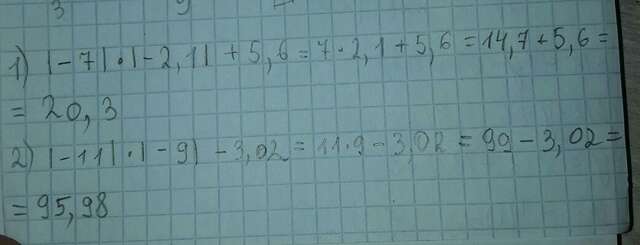 3 9
1) |-7|·|-2,1|+5,6=7·2,1+5,6=14,7+5,6=
=20,3
2) |-11|·|-9|-3,02=11·9-3,02=99-3,02=
=95,98